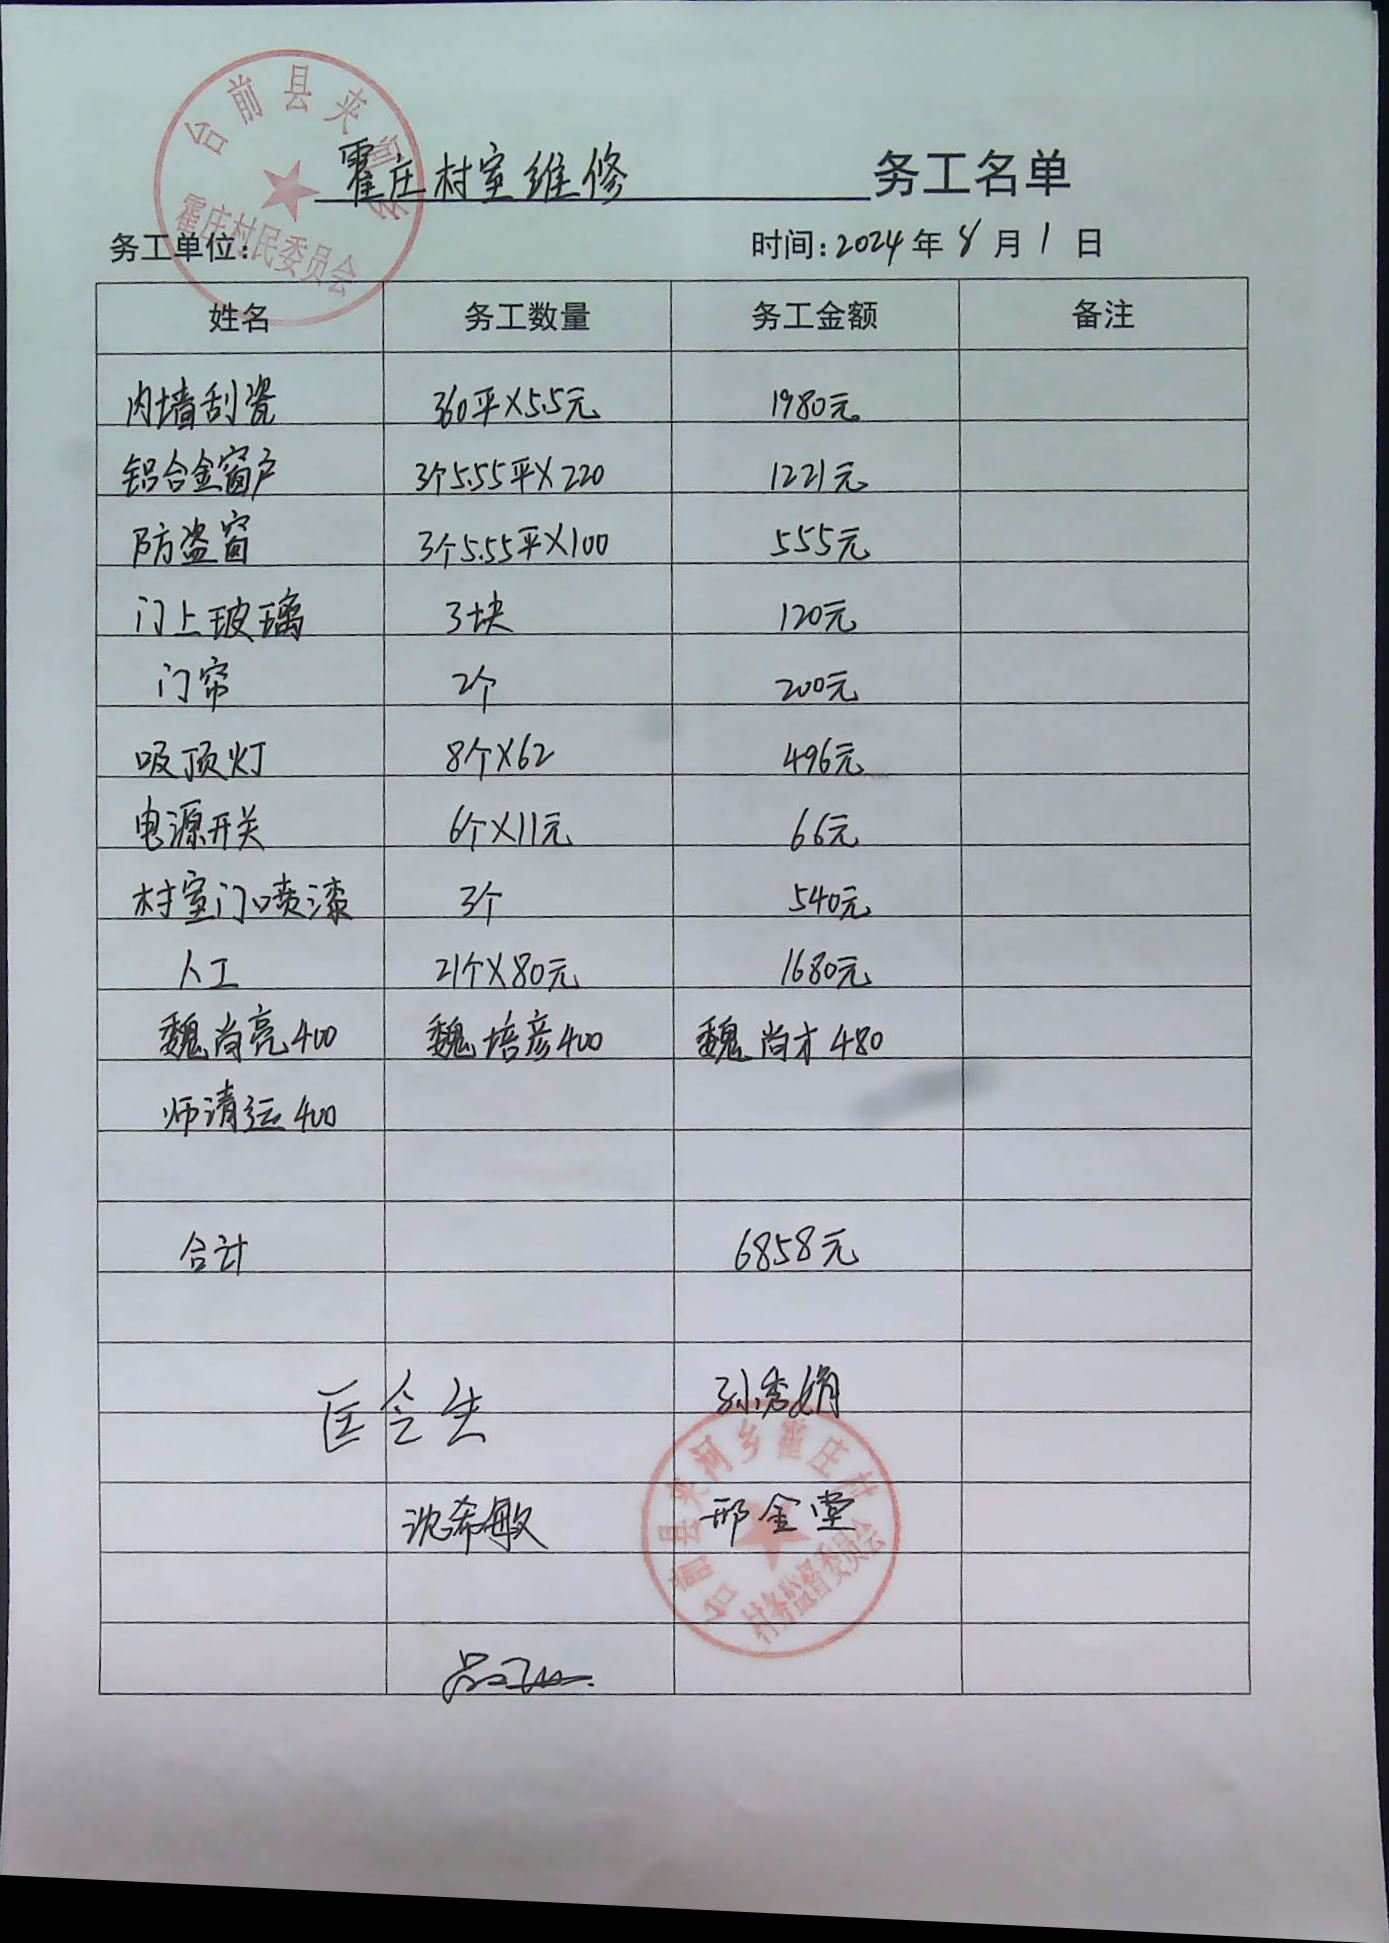 台前县夹河乡
霍庄村民委员会
霍庄村室维修 务工名单
务工单位: 时间:2024年8月1日
姓名 务工数量 务工金额 备注
内墙刮瓷 360平×5.5元 1980元
铝合金窗户 3个5.55平×220 1221元
防盗窗 3个5.55平×100 555元
门上玻璃 3块 120元
门帘 2个 200元
吸顶灯 8个×62 496元
电源开关 6个×11元 66元
村室门喷漆 3个 540元
人工 21个×80元 1680元
魏尚亮400 魏培彦400 魏尚才480
师清运400
合计 6858元
孙秀娟
沈希敏 邢金堂
台前县夹河乡霍庄村
村务监督委员会